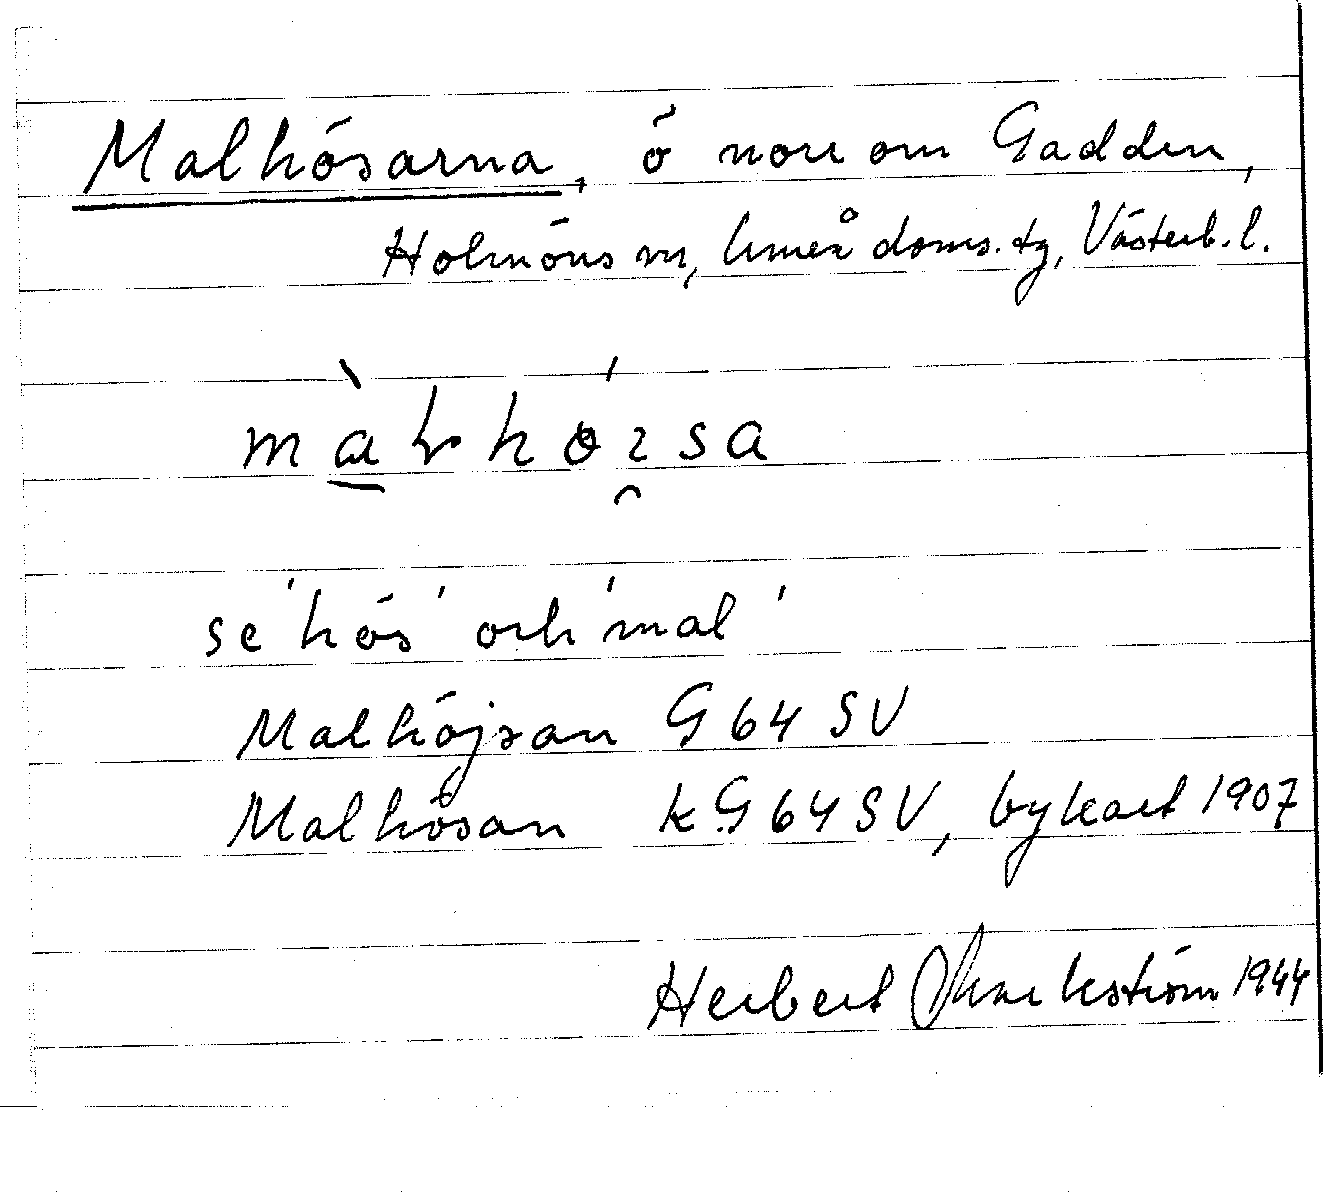 Malhösarna, ö norr om Gadden,
Holmöns sn, Umeå doms. tg, Västerb. l.
se 'hös' och 'mal'
Malhöjsan G 64 SV
Malhösan k. G 64 SV, bykart 1907
Herbert 1944